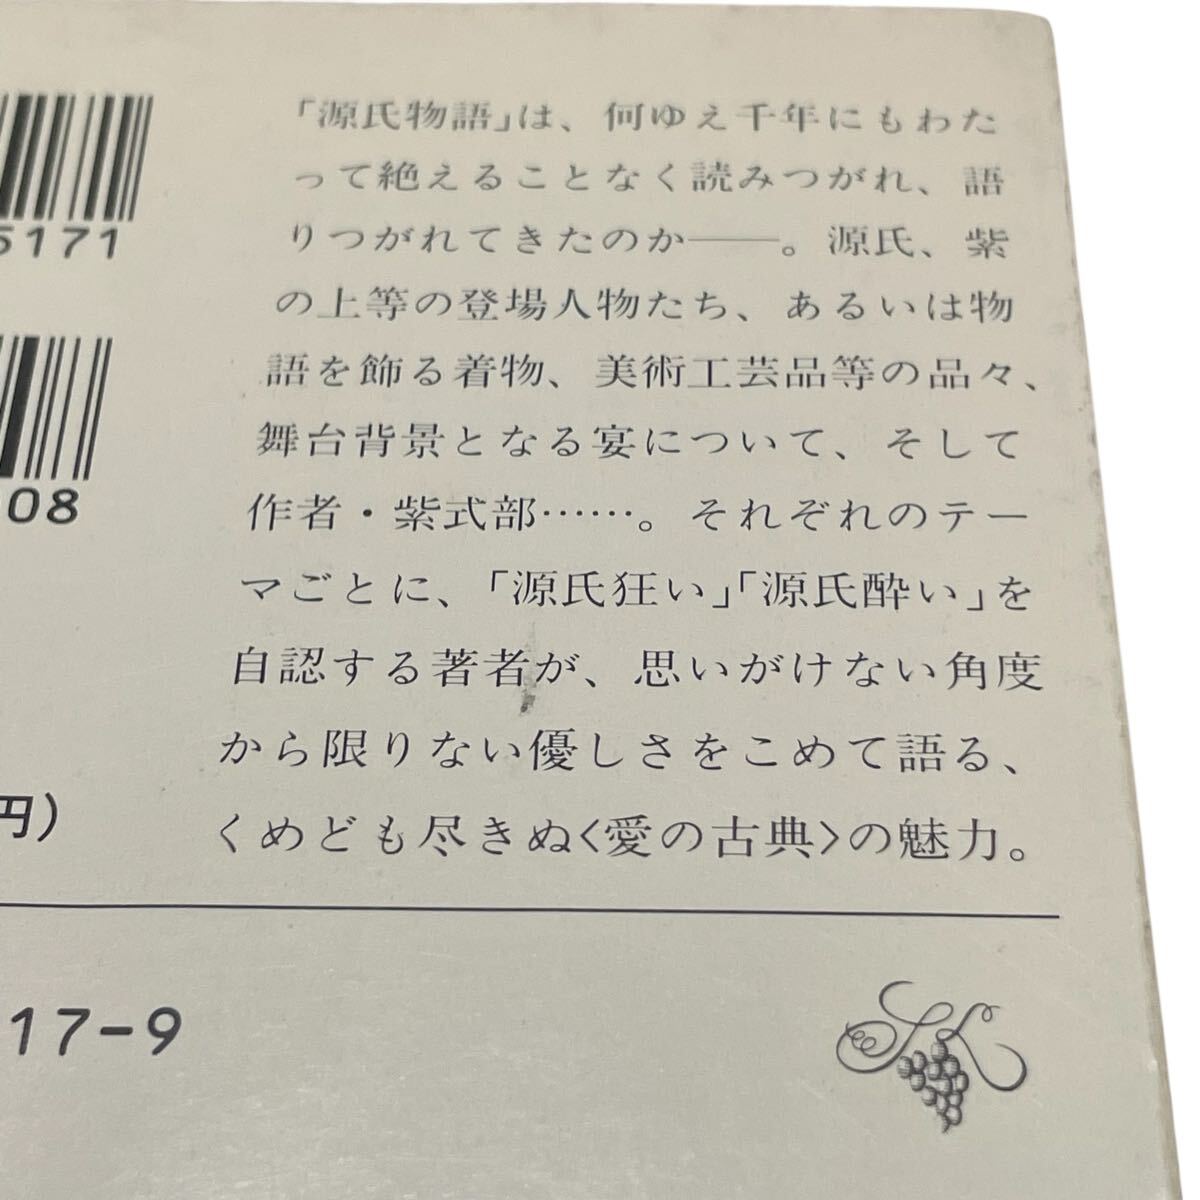 「源氏物語」は、何ゆえ千年にもわた
って絶えることなく読みつがれ、語
りつがれてきたのか──。源氏、紫
の上等の登場人物たち、あるいは物
語を飾る着物、美術工芸品等の品々、
舞台背景となる宴について、そして
作者・紫式部……。それぞれのテー
マごとに、「源氏狂い」「源氏酔い」を
自認する著者が、思いがけない角度
から限りない優しさをこめて語る、
くめども尽きぬ〈愛の古典〉の魅力。
5171
08
円)
17-9